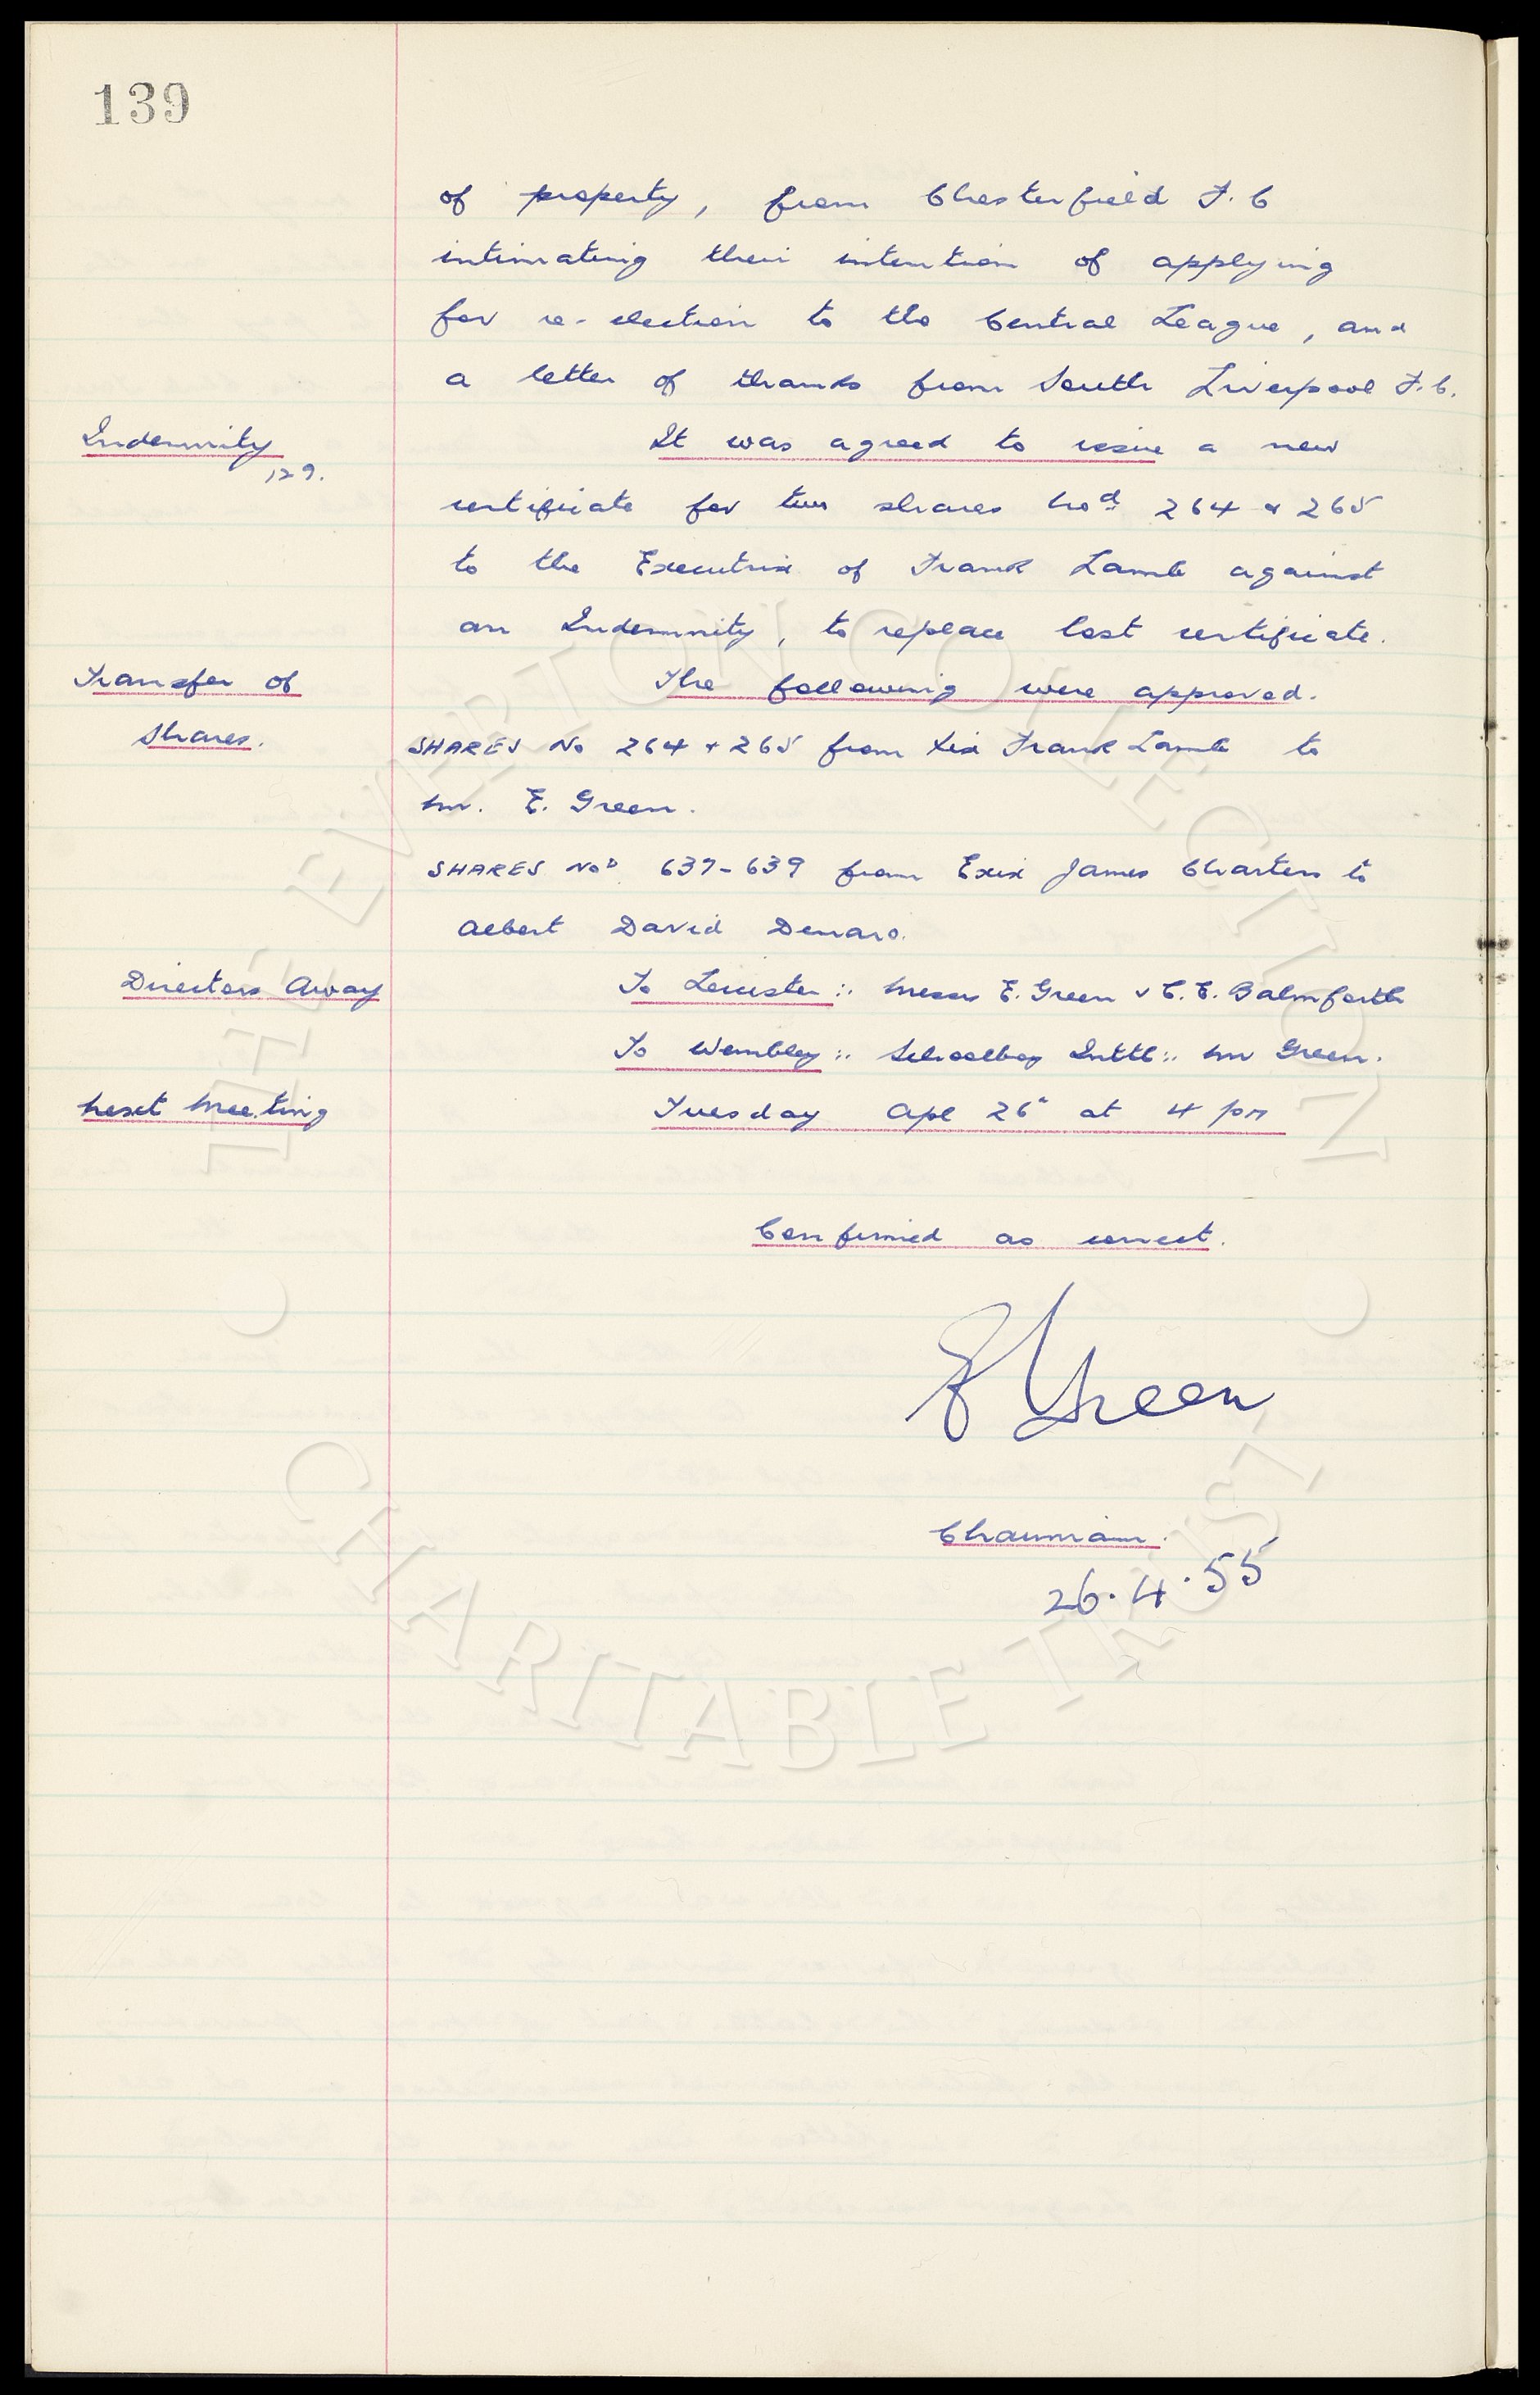 139
of property, from Chesterfield F.C
intimating their intention of applying
for re-election to the Central League, and
a letter of thanks from South Liverpool F.C.
Indemnity
129.
It was agreed to issue a new
certificate for two shares Nod 264 & 265
to the Executrix of Frank Lamb against
an Indemnity, to replace lost certificate.
Transfer of
Shares.
The following were approved.
SHARES No 264 & 265 from Frank Lamb to
Mr. E. Green.
SHARES Nod 637-639 from Exix James Charters to
Albert David Denaro.
Directors Away
To Leicester:: Messrs E. Green & C.E. Balmforth
To Wembley:: Schoolboy Inttl:: Mr Green.
Next Meeting
Tuesday Apl 26" at 4 pm
Confirmed as correct.
E Green
Chairman.
26.4.55
THE EVERTON COLLECTION
CHARITABLE TRUST